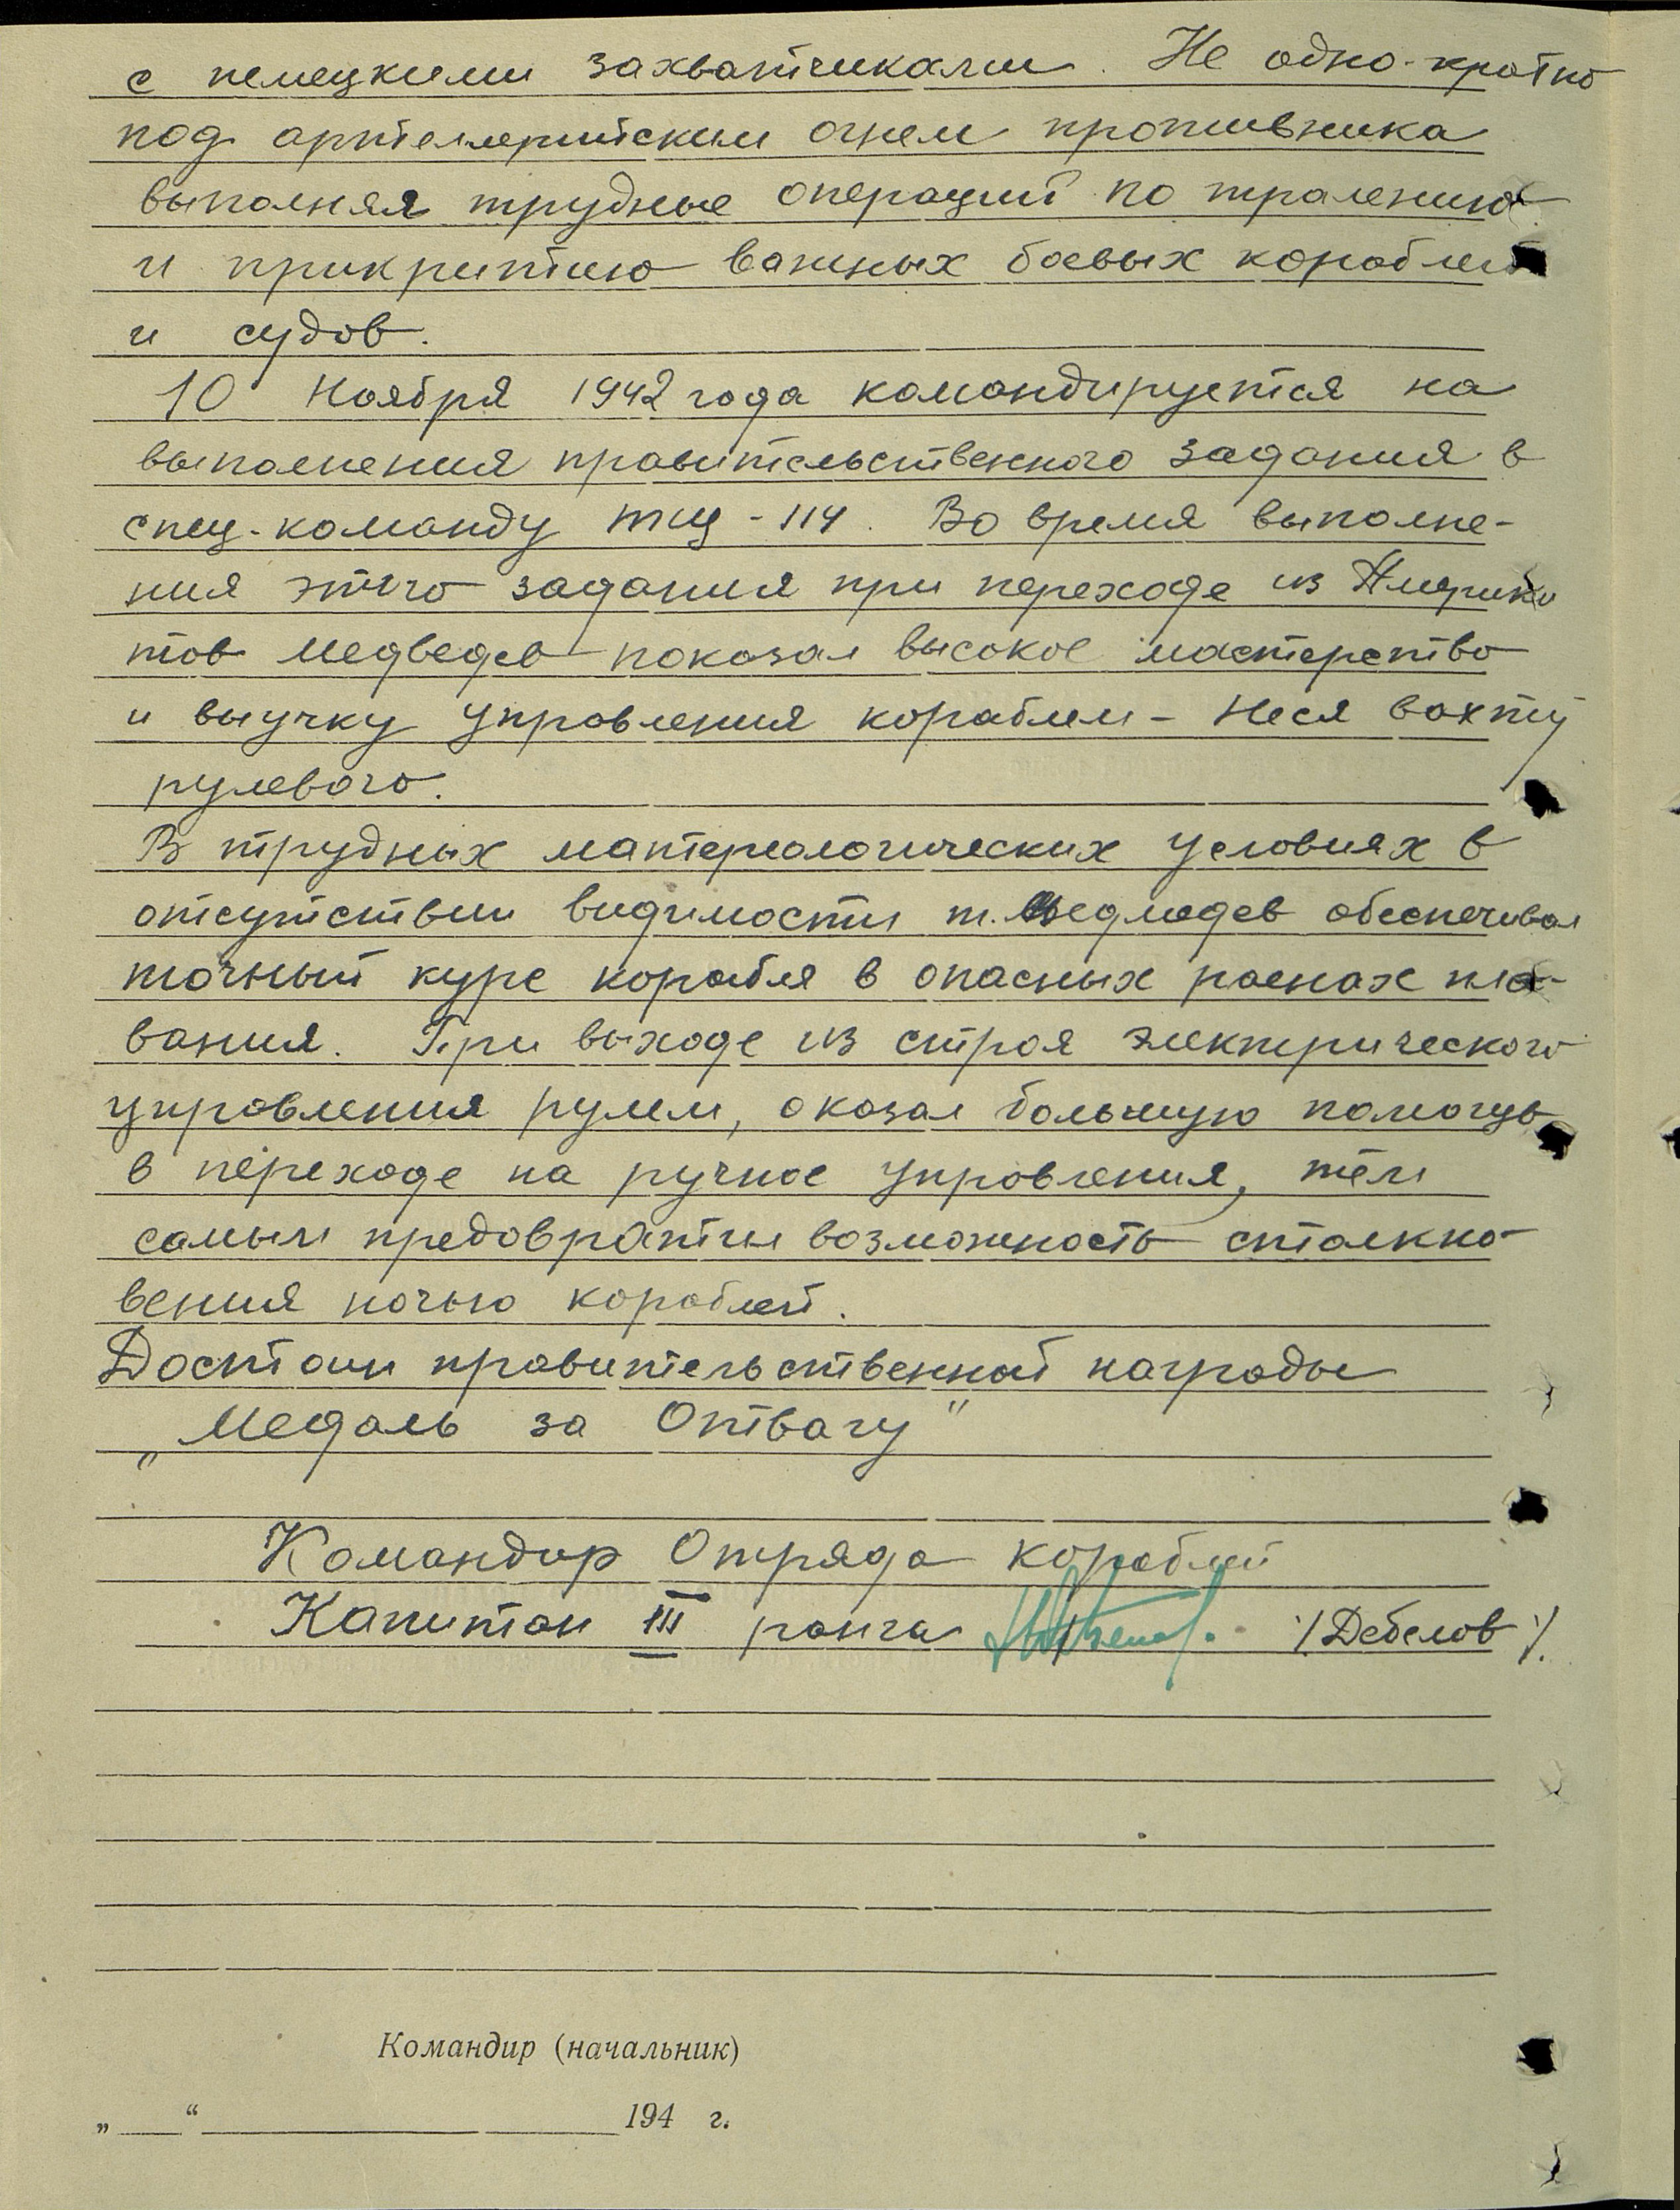 с немецкими захватчиками. Не одно-кратно
под артиллерийским огнем противника
выполняя трудные операций по тралению
и прикрытию важных боевых кораблей
и судов.
10 Ноября 1942 года командируется на
выполнения правительственного задания в
спец-команду тщ-114. Во время выполне-
ния этого задания при переходе из Америки
тов Медведев показал высокое мастерство
и выучку управления кораблем – Неся вахту
рулевого.
В трудных матереологических условиях в
отсутствии видимости т. обеспечивал
точный курс корабля в опасных раенах пла-
вания. При выходе из строя электрического
управления рулем, оказал большую помощь
в переходе на ручное управления, тем
самым предовратил возможность столкно-
вения ночью кораблей.
Достоин правительственной награды
„Медаль за Отвагу"
Командир Отряда кораблей
Капитан III ранга ./Дебелов/.
Командир (начальник)
„ “ 194 г.